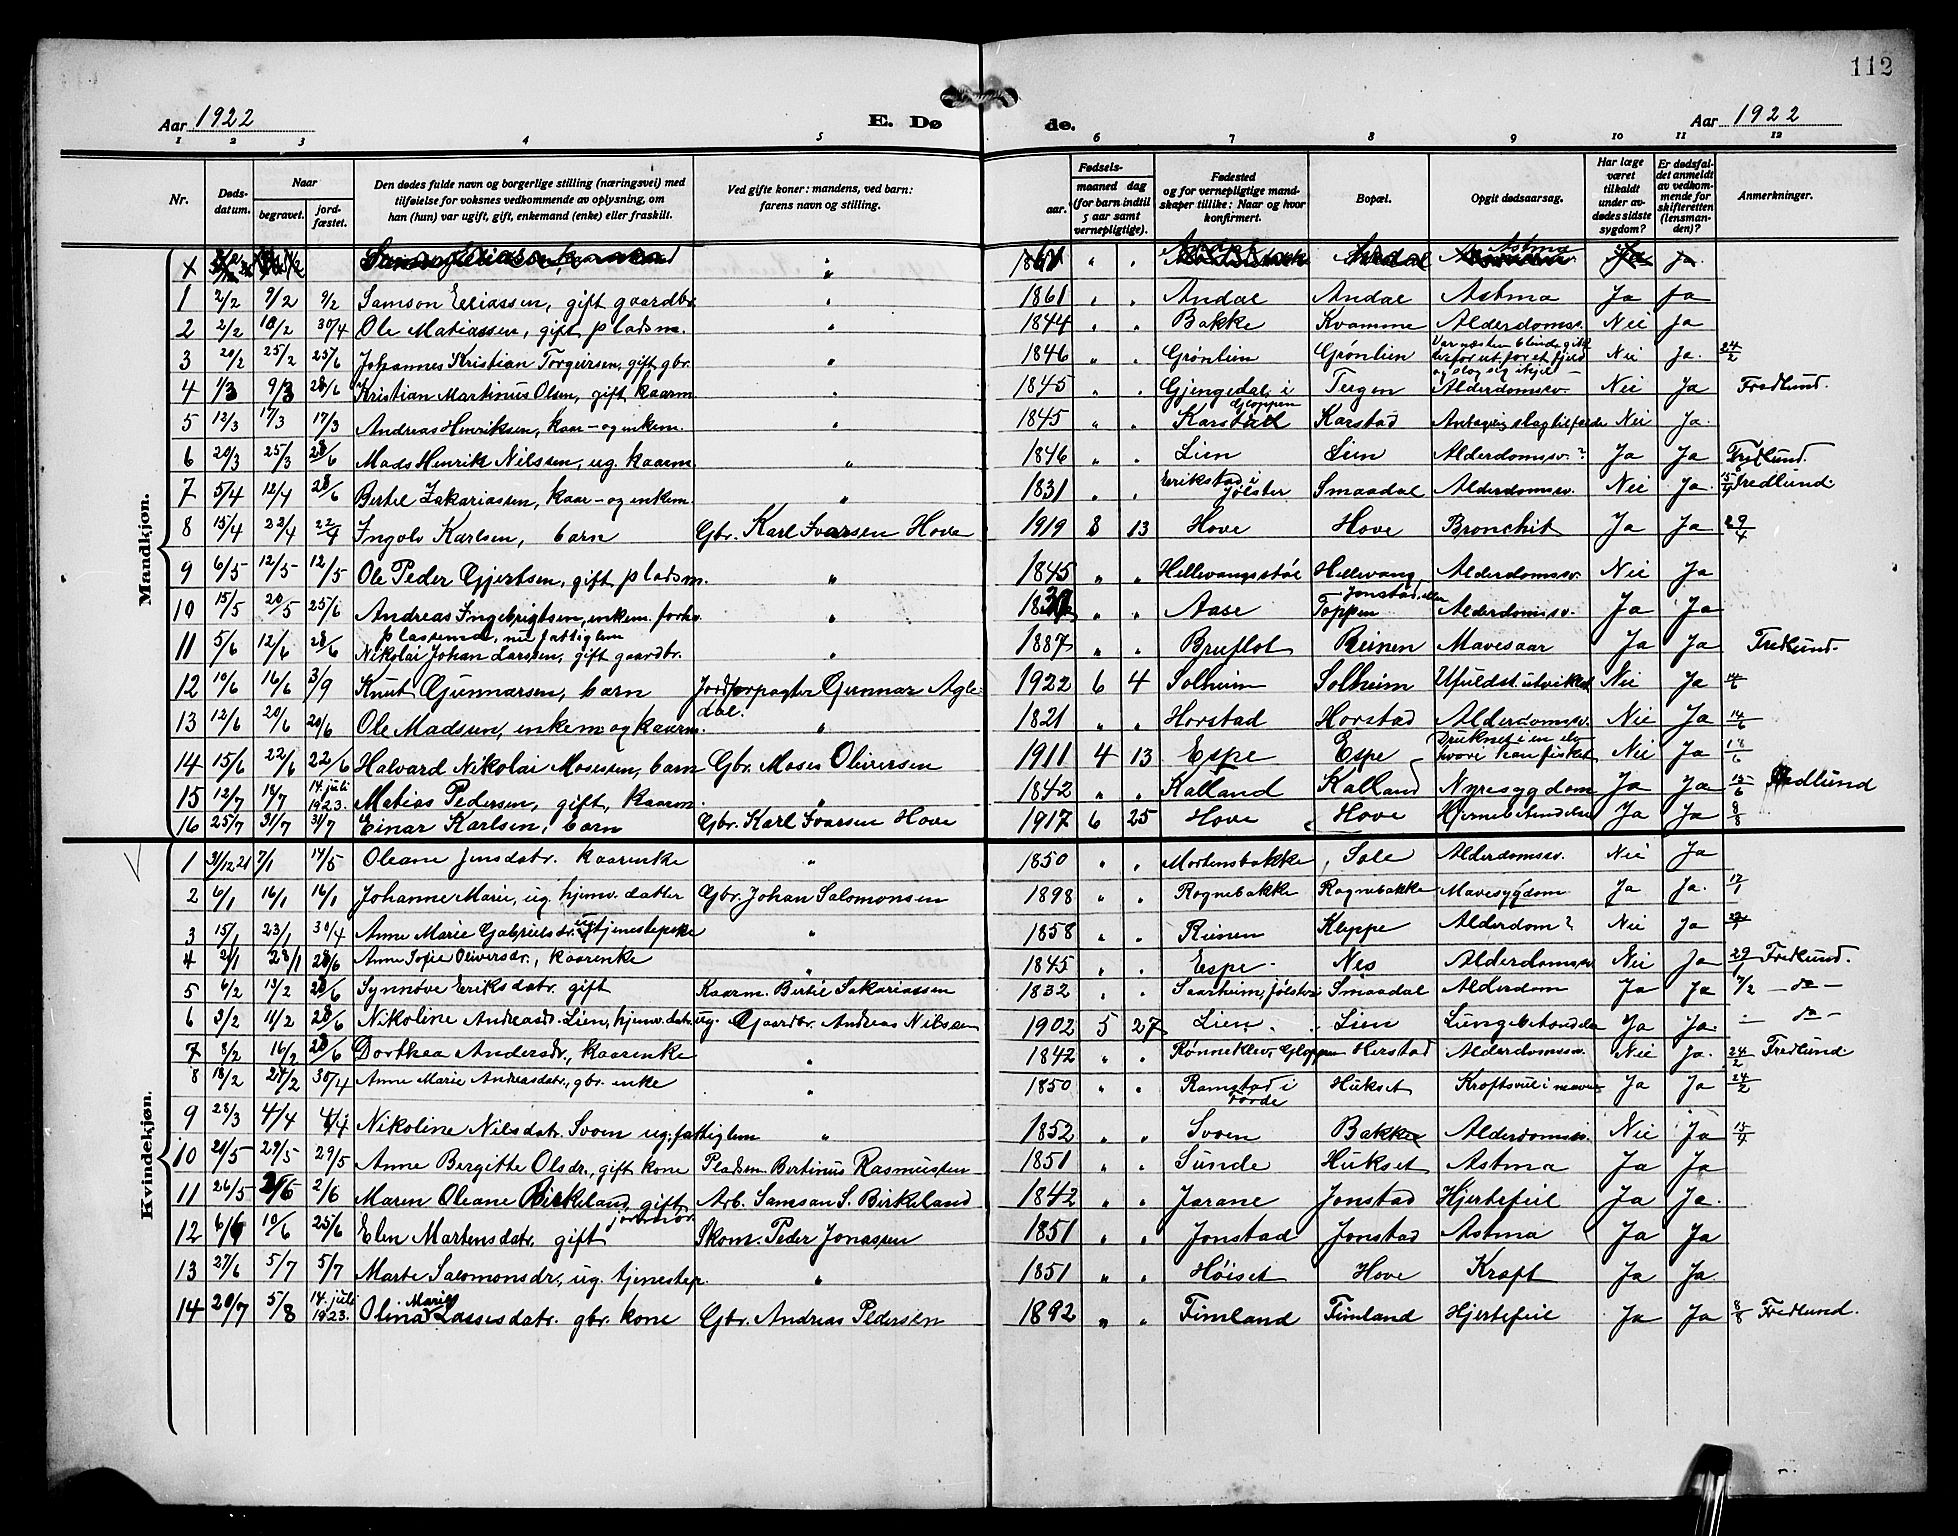 112
Aar 1922
E. Dø
de.
Aar 1922
1 2 3 4 5 6 7 8 9 10 11 12
Nr.
Døds-
datum.
Naar
begravet.
jord-
fæstet.
Den dødes fulde navn og borgerlige stilling (næringsvei) med
tilføielse for voksnes vedkommende av oplysning, om
han (hun) var ugift, gift, enkemand (enke) eller fraskilt.
Ved gifte koner: mandens, ved barn:
farens navn og stilling.
Fødsels-
aar.
maaned dag
(for barn indtil
5 aar samt
vernepligtige).
Fødested
og for vernepligtige mand-
skaper tillike: Naar og hvor
konfirmert.
Bopæl.
Opgit dødsaarsag.
Har læge
været
tilkaldt
under av-
dødes sidste
sygdom?
Er dødsfal-
det anmeldt
av vedkom-
mende for
skifteretten
(lensman-
den)?
Anmerkninger.
Mandkjøn.
1 2/2 9/2 9/2 Samson Eliassen, gift gaardbr. " 1861 " " Andal Andal Astma Ja Ja
2 2/2 10/2 30/4 Ole Matiassen, gift pladsm. " 1844 " " Bakke Kvamme Alderdomssv. Nei Ja
3 20/2 25/2 25/6 Johannes Kristian Torgersen, gift gbr. " 1846 " " Grønlien Grønlien Var næsten blind, gikk derfor ut for et fjeld og slog sig ihjel — Nei Ja. 24/2
4 1/3 9/3 28/6 Kristian Martinus Olsen, gift kaarm. " 1845 " " Gjengedal i Gloppen Tugen Alderdomssv. Nei Ja Fredlund.
5 12/3 17/3 17/3 Andreas Henriksen, kaar- og enkem. " 1845 " " Karstad Karstad Antagelig slagtilfælde Nei Ja.
6 20/3 25/3 28/6 Mads Henrik Nilssen, ug. kaarm. " 1846 " " Lien Lien Alderdomssv.? Ja Ja Fredlund.
7 5/4 12/4 28/6 Bertel Zakariassen, kaar- og enkem. " 1831 " " Erikstad i Jølster Smaadal Alderdomssv. Nei Ja. Fredlund.
8 15/4 22/4 22/4 Ingolv Karlsen, barn Gbr. Karl Ivarsen Hove 1919 8 13 Hove Hove Bronchit Ja Ja 29/4
9 6/5 12/5 12/5 Ole Peder Gjertsen, gift pladsm. " 1845 " " Hellevangstøl Hellevang Alderdomssv. Nei Ja
10 15/5 20/5 25/6 Andreas Ingebrigtsen, enkem. forhv. plassemd, nu fattiglem " " " Aase Jonstad, eller Toppen Alderdomssv. Ja Ja
11 5/6 12/6 28/6 Nikolai Johan Larssen, gift gaardbr. " 1887 " " Bruflot Reinen Mavesaar Ja Ja Fredlund.
12 10/6 16/6 3/9 Knut Gunnarsen, barn Jordforpagter Gunnar Agledal. 1922 6 4 Solheim Solheim Ufuldst. utviklet Nei Ja 14/6
13 12/6 20/6 20/6 Ole Madsen, enkem. og kaarm. " 1821 " " Horstad Horstad Alderdomssv. Nei Ja 14/6
14 15/6 22/6 22/6 Halvard Nikolai Mosessen, barn Gbr. Moses Oliversen 1911 4 13 Espe Espe Druknet i en elv hvori han fisket Nei Ja 18/6
15 12/7 18/7 14. juli 1923. Matias Pedersen, gift, kaarm. " 1842 " " Kalland Kalland Nyresygdom Ja Ja 15/6 Fredlund
16 25/7 31/7 31/7 Einar Karlsen, barn Gbr. Karl Ivarsen Hove 1917 6 25 Hove Hove Hjernebetændelse Ja Ja 8/8
Kvindekjøn.
1 31/12 21 7/1 14/5 Oleane Jensdatr. kaarenke " 1850 " " Mortensbakke Sole Alderdomssv. Nei Ja
2 6/1 16/1 16/1 Johanne Marie, ug. hjemv. datter Gbr. Johan Salomonsen 1898 " " Rognebakke Rognebakke Mavesygdom Ja Ja. 12/1
3 15/1 23/1 30/4 Anne Marie Gabrielsdr. ug. tjenestepike " 1858 " " Reinen Kleppe Alderdom? Nei Ja
4 21/1 28/1 28/6 Anne Sofie Oliversdr., kaarenke " 1845 " " Espe Nes Alderdomssv. Nei Ja 29/1 Fredlund.
5 6/2 13/2 28/6 Synnøve Eriksdatr. gift Kaarm. Bertel Sakariassen 1832 " " Saarheim, Jølster Smaadal Alderdom Ja Ja — do —
6 3/2 11/2 28/6 Nikoline Andreasdr. Lien, hjemv. datr. ug. Gaardbr. Andreas Nilssen 1902 5 27 Lien Lien Lungebetændelse Ja Ja — do —
7 8/2 16/2 28/6 Dorthea Andersdr., kaarenke " 1842 " " Rønneklev, Gloppen Herstad Alderdomssv. Nei Ja. 24/2 Fredlund.
8 18/2 27/2 30/4 Anne Marie Andreasdatr., gbr. enke " 1850 " " Ramstad i Førde Hukset Kræftsvul i maven Ja Ja 24/2
9 28/3 4/4 4/4 Nikoline Nilsdatr. Svoen ug. fattiglem " 1852 " " Svoen Bakke Alderdomssv. Nei Ja 15/4
10 21/5 29/5 29/5 Anne Bergitte Olsdr., gift kone Pladsm. Bertinus Rasmussen 1851 " " Sunde Hukset Astma Ja Ja
11 26/5 2/6 2/6 Maren Oleane Birkeland, gift jordmor. Arb. Samson S. Birkeland 1842 " " Jarane Jonstad Hjertefeil Ja Ja.
12 6/6 10/6 25/6 Elen Martensdatr. gift Skom. Peder Jonassen 1851 " " Jonstad Jonstad Astma Ja Ja
13 27/6 5/7 5/7 Marte Salomonsdr., ug. tjenestep. " 1851 " " Høiset Hove Kræft Ja Ja
14 20/7 5/8 14. juli 1923. Olina Marie Lassesdatr. gbr. kone Gbr. Andreas Pedersen 1892 " " Fimland Fimland Hjertefeil Ja Ja 8/8 Fredlund.